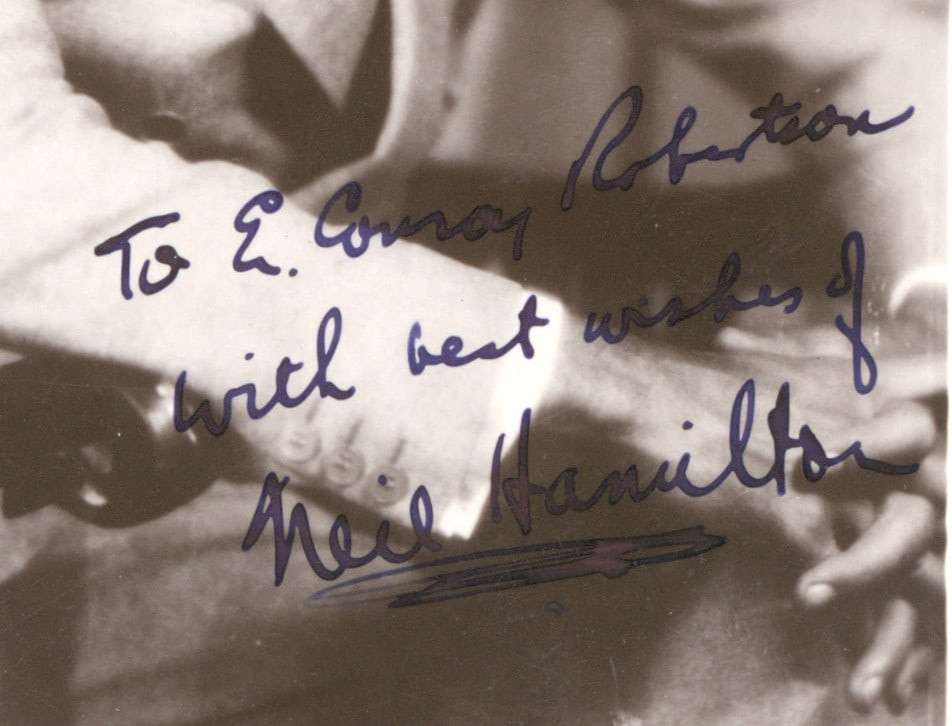 To E. Conroy Robertson
with best wishes of
Neil Hamilton